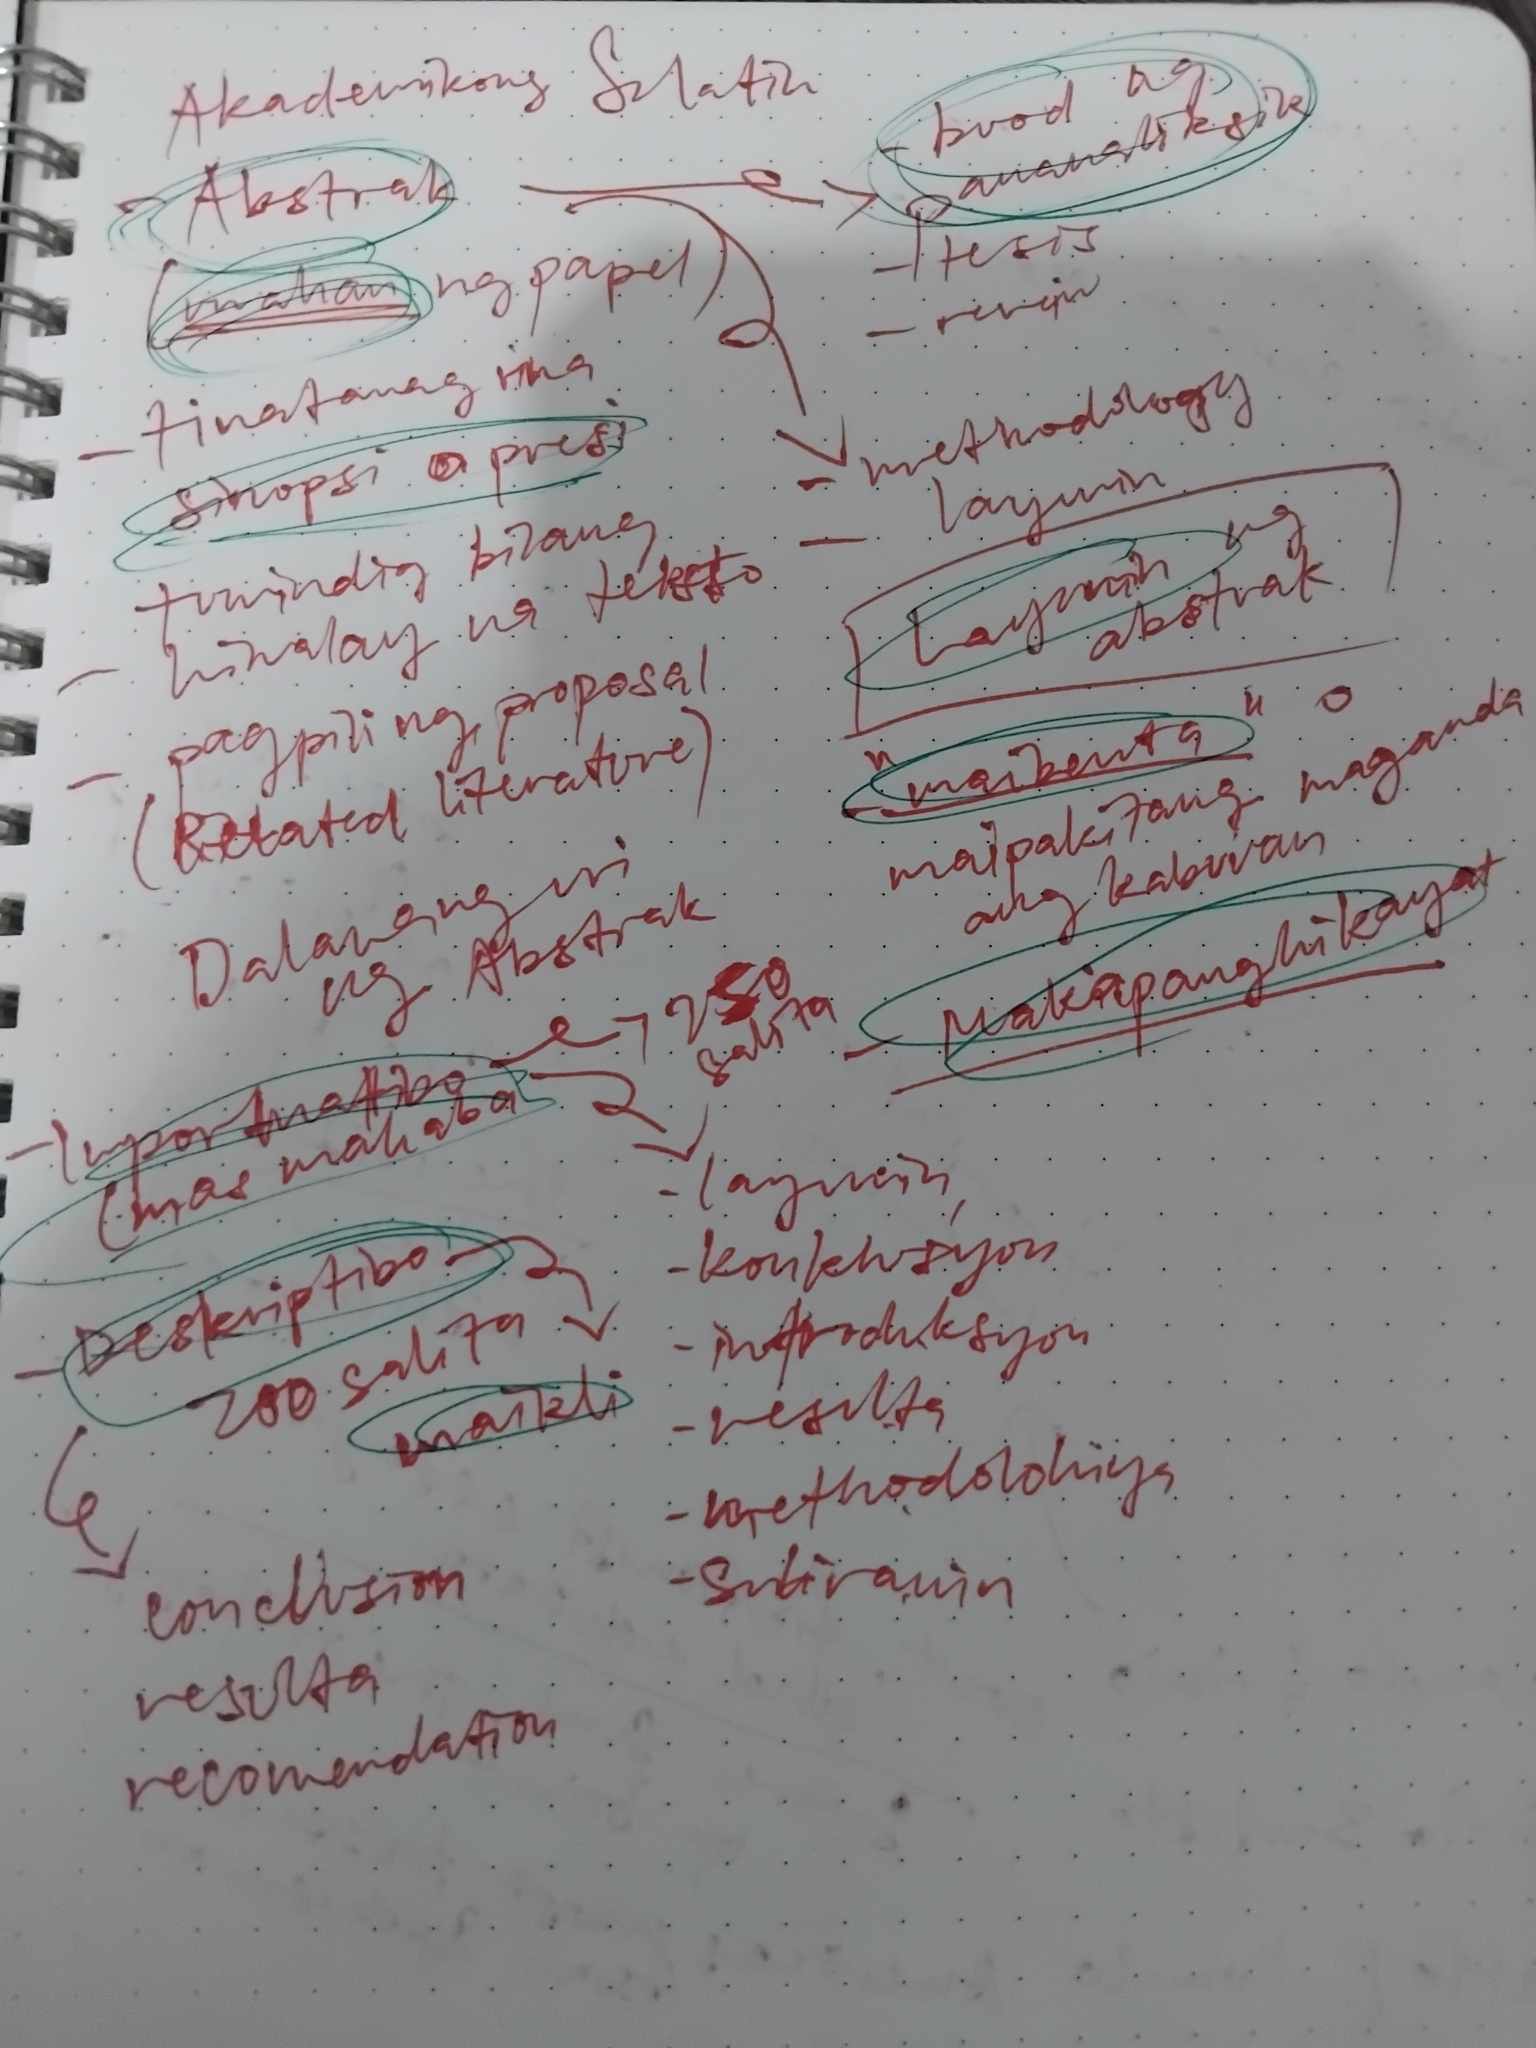 Akademikong Sulatin
- Abstrak
(unahan ng papel)
- tinatanag rina
sinopsi o presi
tumindig bilang
- hinalay na teksto
- pagpili ng proposal
(Related literature)
Dalawang uri
ng Abstrak
- Impormatibo
(mas mahaba
250
salita
- Deskriptibo
200 salita
maikli
conclusion
resulta
recomendation
- buod ng
pananaliksik
- tesis
- methodology
- layunin
Layunin ng
abstrak
- "maibenta" o
maipakitang maganda
ang kabuuan
- Makapanghikayat
- layunin,
- konklusyon
- introduksyon
- resulta
- methodolohiya
- suliranin